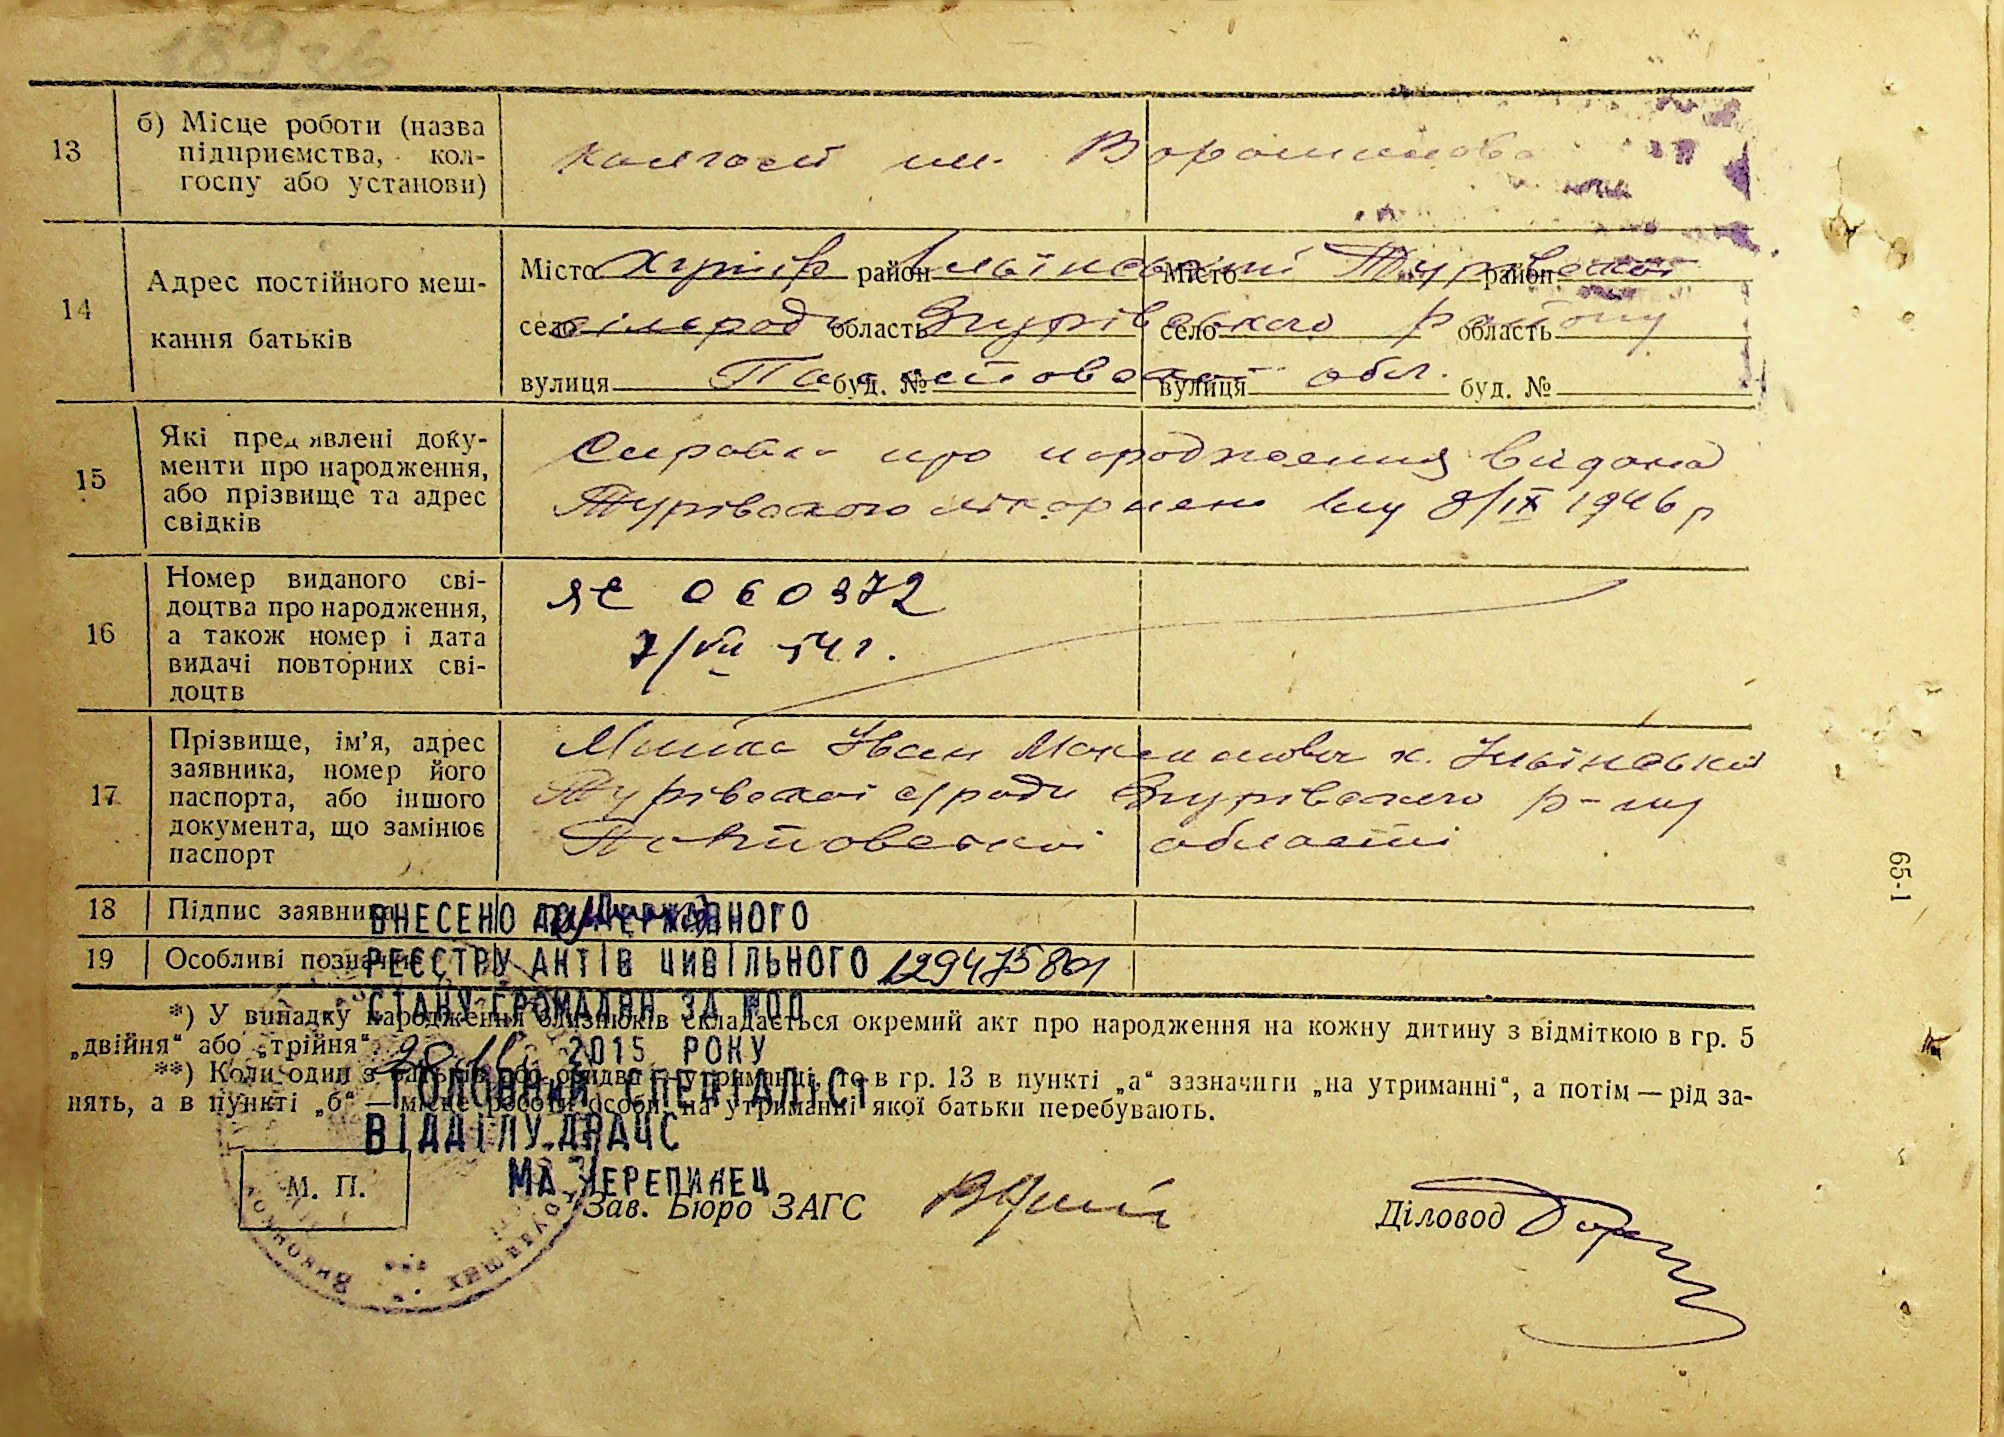 13
б) Місце роботи (назва
підприємства, кол-
госпу або установи)
колгосп ім. Ворошилова
14
Адрес постійного меш-
кання батьків
Місто хутір район Ільїнський Місто Турівської район
село сільради область Згурівського село району область
вулиця Полтавської буд. № вулиця обл. буд. №
15
Які пред'явлені доку-
менти про народження,
або прізвище та адрес
свідків
Справка про народження видана
Турівською лікарнею 8/IX 1946 р
16
Номер виданого сві-
доцтва про народження,
а також номер і дата
видачі повторних сві-
доцтв
ЯЕ 060372
7/VII 54 г.
17
Прізвище, ім'я, адрес
заявника, номер його
паспорта, або іншого
документа, що замінює
паспорт
Іван х. Ільїнський
Турівської с/ради Згурівського р-ну
Полтавської області
18
Підпис заявника
19
Особливі позначки
ВНЕСЕНО ДО ДЕРЖАВНОГО
РЕЄСТРУ АКТІВ ЦИВІЛЬНОГО
СТАНУ ГРОМАДЯН ЗА №00129475801
28.11. 2015 РОКУ
ГОЛОВНИЙ СПЕЦІАЛІСТ
ВІДДІЛУ ДРАЦС
М.А. ЧЕРЕПИНЕЦ
*) У випадку народження близнюків складається окремий акт про народження на кожну дитину з відміткою в гр. 5
„двійня“ або „трійня“.
**) Коли один з батьків або обидва на утриманні, то в гр. 13 в пункті „а“ зазначити „на утриманні“, а потім — рід за-
нять, а в пункті „б“ — місце роботи особи, на утриманні якої батьки перебувають.
М. П.
Зав. Бюро ЗАГС
Діловод
65-1